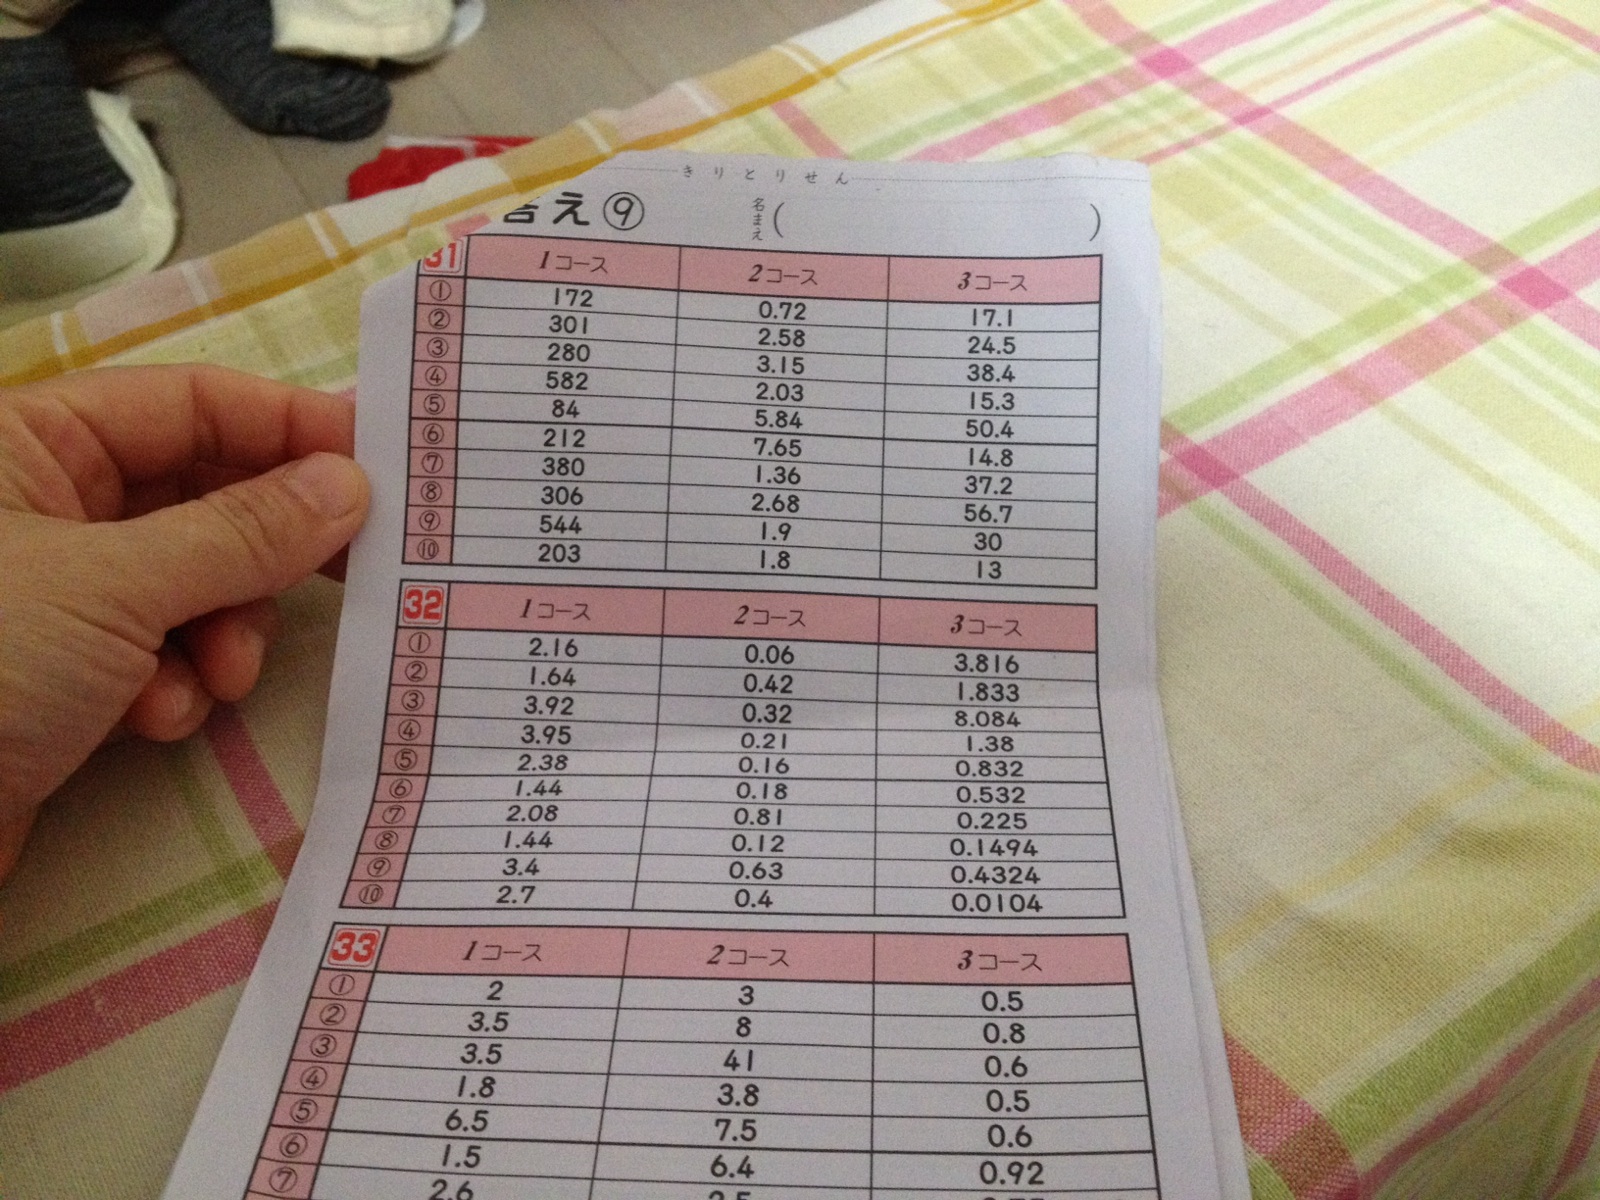 きりとりせん
答え⑨ 名まえ( )
31 1コース 2コース 3コース
① 172 0.72 17.1
② 301 2.58 24.5
③ 280 3.15 38.4
④ 582 2.03 15.3
⑤ 84 5.84 50.4
⑥ 212 7.65 14.8
⑦ 380 1.36 37.2
⑧ 306 2.68 56.7
⑨ 544 1.9 30
⑩ 203 1.8 13
32 1コース 2コース 3コース
① 2.16 0.06 3.816
② 1.64 0.42 1.833
③ 3.92 0.32 8.084
④ 3.95 0.21 1.38
⑤ 2.38 0.16 0.832
⑥ 1.44 0.18 0.532
⑦ 2.08 0.81 0.225
⑧ 1.44 0.12 0.1494
⑨ 3.4 0.63 0.4324
⑩ 2.7 0.4 0.0104
33 1コース 2コース 3コース
① 2 3 0.5
② 3.5 8 0.8
③ 3.5 41 0.6
④ 1.8 3.8 0.5
⑤ 6.5 7.5 0.6
⑥ 1.5 6.4 0.92
⑦ 2.6